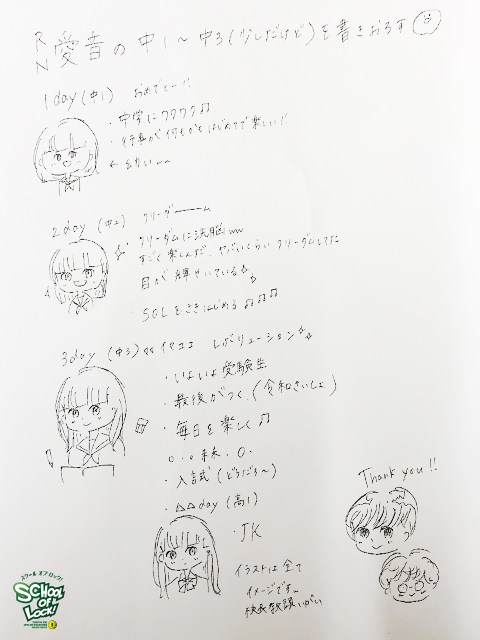 RN 愛音の中1〜中3(少しだけど)を書きおろす
1day(中1) おめでとー!!
・中学にワクワク♪♪
・行事が何もかもはじめてで楽しい!
← 幼いww
2day (中2) フリーダーーム
フリーダムに洗脳ww
すごく楽しんだ、ヤバいくらいフリーダムしてた
目が輝いている
・SOLをききはじめる♪♪♪
3day (中3) レボリューション
・いよいよ受験生
・最後がつく(令和さいしょ)
・毎日を楽しく♪♪
・入試(どうだろ〜)
・△△day(高1)
・JK
イラストは全て
イメージです〜
校長教頭いがい
Thank you!!
スクール オブ ロック!
SCHOOL OF LOCK!